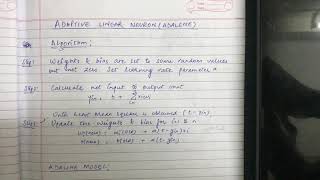 ADAPTIVE LINEAR NEURON (ADALINE)
Algorithm:
Step1 Weights & bias are set to some random values
but not zero. Set learning rate parameter α
Step2 Calculate net input to output unit
Until Least Mean Square is obtained (t - yin),
Step3 Update the weights & bias for i=1 to n
wi(new) = wi(old) + α(t-yin)xi
b(new) = b(old) + α(t-yin).
ADALINE MODEL: